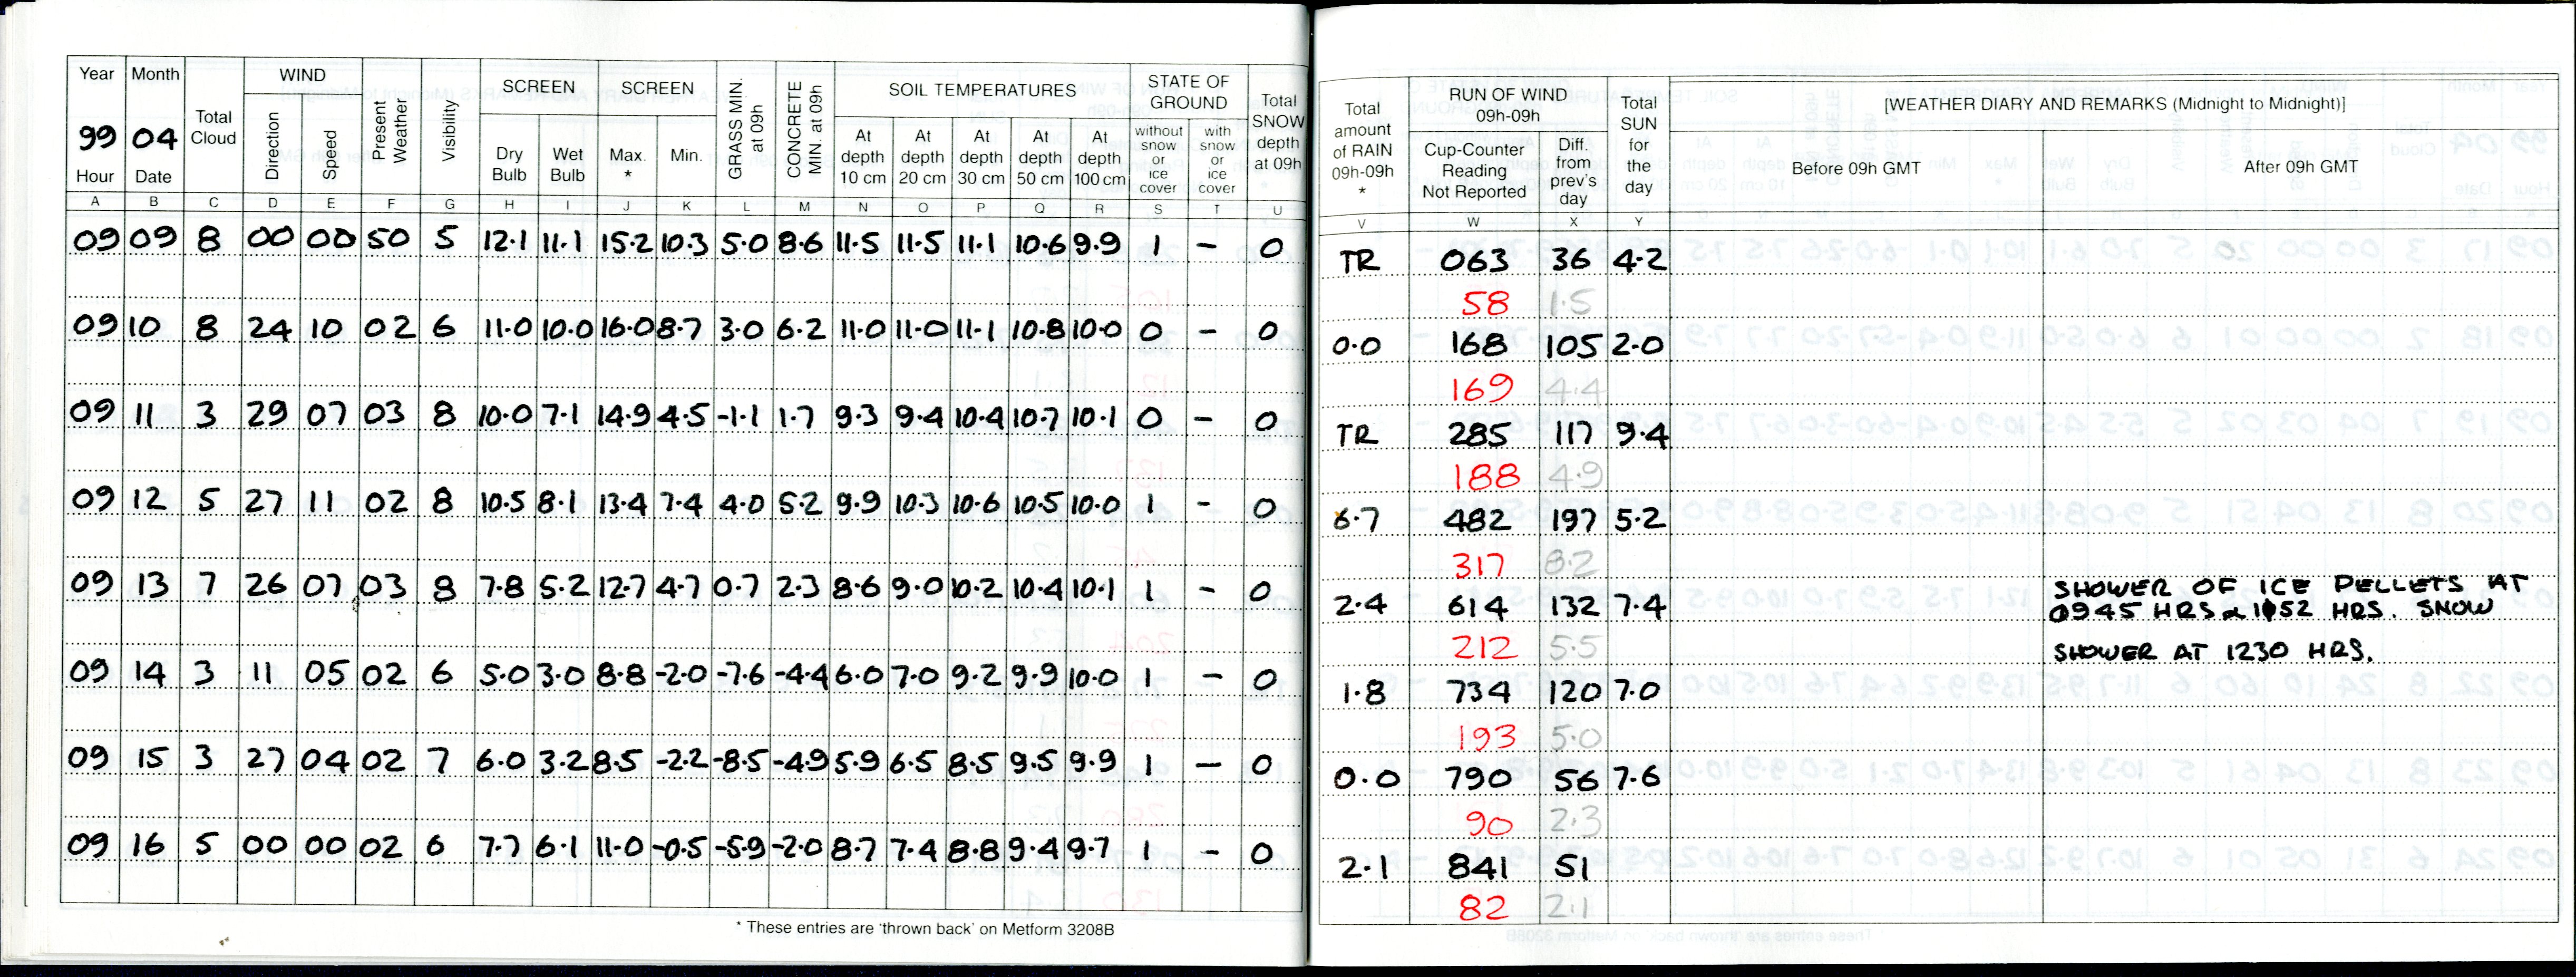 Year Month Total Cloud WIND Present Weather Visibility SCREEN SCREEN GRASS MIN. at 09h CONCRETE MIN. at 09h SOIL TEMPERATURES STATE OF GROUND Total SNOW depth at 09h
99 04 Direction Speed Dry Bulb Wet Bulb Max. * Min. At depth 10 cm At depth 20 cm At depth 30 cm At depth 50 cm At depth 100 cm without snow or ice cover with snow or ice cover
Hour Date
A B C D E F G H I J K L M N O P Q R S T U
09 09 8 00 00 50 5 12.1 11.1 15.2 10.3 5.0 8.6 11.5 11.5 11.1 10.6 9.9 1 - 0
09 10 8 24 10 02 6 11.0 10.0 16.0 8.7 3.0 6.2 11.0 11.0 11.1 10.8 10.0 0 - 0
09 11 3 29 07 03 8 10.0 7.1 14.9 4.5 -1.1 1.7 9.3 9.4 10.4 10.7 10.1 0 - 0
09 12 5 27 11 02 8 10.5 8.1 13.4 7.4 4.0 5.2 9.9 10.3 10.6 10.5 10.0 1 - 0
09 13 7 26 07 03 8 7.8 5.2 12.7 4.7 0.7 2.3 8.6 9.0 10.2 10.4 10.1 1 - 0
09 14 3 11 05 02 6 5.0 3.0 8.8 -2.0 -7.6 -4.4 6.0 7.0 9.2 9.9 10.0 1 - 0
09 15 3 27 04 02 7 6.0 3.2 8.5 -2.2 -8.5 -4.9 5.9 6.5 8.5 9.5 9.9 1 - 0
09 16 5 00 00 02 6 7.7 6.1 11.0 -0.5 -5.9 -2.0 8.7 7.4 8.8 9.4 9.7 1 - 0
* These entries are 'thrown back' on Metform 3208B
Total amount of RAIN 09h-09h * RUN OF WIND 09h-09h Total SUN for the day [WEATHER DIARY AND REMARKS (Midnight to Midnight)]
Cup-Counter Reading Not Reported Diff. from prev's day Before 09h GMT After 09h GMT
V W X Y
TR 063 36 4.2
58 1.5
0.0 168 105 2.0
169 4.4
TR 285 117 9.4
188 4.9
6.7 482 197 5.2
317 8.2
SHOWER OF ICE PELLETS AT
2.4 614 132 7.4 0945 HRS & 1052 HRS. SNOW
212 5.5 SHOWER AT 1230 HRS.
1.8 734 120 7.0
193 5.0
0.0 790 56 7.6
90 2.3
2.1 841 51
82 2.1